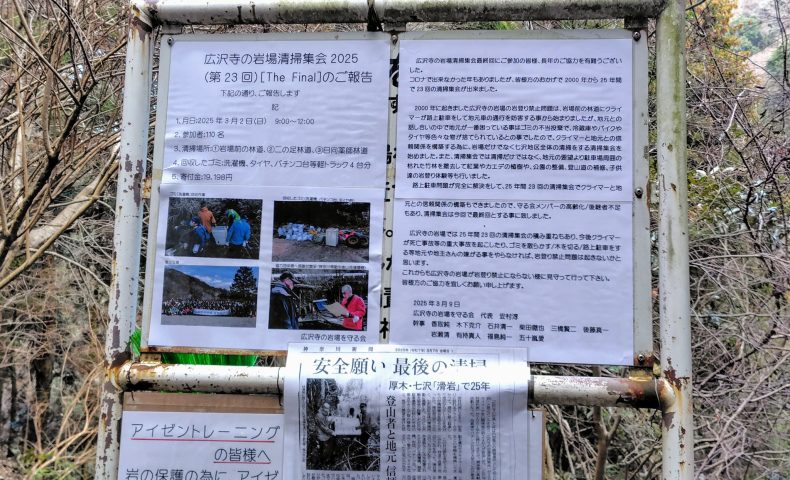 広沢寺の岩場清掃集会 2025
(第 23 回) [The Final]のご報告
下記の通り、ご報告します
記
1. 月日:2025年3月2日(日) 9:00~12:00
2. 参加者:110名
3. 清掃場所:①岩場前の林道、②二の足林道、③日向薬師林道
4. 回収したゴミ:洗濯機、タイヤ、パチンコ台等軽トラック4台分
5. 寄付金:19,198円
広沢寺の岩場を守る会
広沢寺の岩場清掃集会最終回にご参加の皆様、長年のご協力を有難うござい
ました。
コロナで出来なかった年もありましたが、皆様方のおかげで2000年から25年間
で23回の清掃集会が出来ました。
2000年に起きました広沢寺の岩場の岩登り禁止問題は、岩場前の林道にクライ
マーが路上駐車をして地元車の通行を妨害する事から始まりましたが、地元との
話し合いの中で地元が一番困っている事はゴミの不当投棄で、冷蔵庫やバイクや
タイヤ等色々な物が捨てられているとの事でしたので、クライマーと地元との信
頼関係を構築する為に、岩場だけでなく七沢地区全体の清掃をする清掃集会を
始めました。また、清掃集会では清掃だけではなく、地元の要望より駐車場周囲の
枯れた竹林を撤去して紅葉やカエデの植樹や、公園の整備、登山道の補修、子供
達の岩登り体験等も行いました。
路上駐車問題が完全に解決をして、25年間23回の清掃集会でクライマーと地
元との信頼関係の構築もできましたので、守る会メンバーの高齢化/後継者不足
もあり、清掃集会は今回で最終回とする事に致しました。
広沢寺の岩場では25年間23回の清掃集会の積み重ねもあり、今後クライマー
が死亡事故等の重大事故を起こしたり、ゴミを散らかす/木を切る/路上駐車をす
る等地元や地主さんの嫌がる事をやらなければ、岩登り禁止問題は起きないかと
思います。
これからも広沢寺の岩場が岩登り禁止にならない様に見守って行って下さい。
皆様方のご協力を宜しくお願い申し上げます。
2025年3月9日
広沢寺の岩場を守る会 代表
幹事 香取純 木下克介 石井清一 柴田徹也 三橋賢二 後藤真一
岩瀬清 有持真人 福島純一 五十嵐愛
責
神奈川新聞
安全願い 最後の清掃
厚木・七沢「滑岩」で25年
登山者と地元 信
アイゼントレーニング
の皆様へ
岩の保護の為に、アイゼ